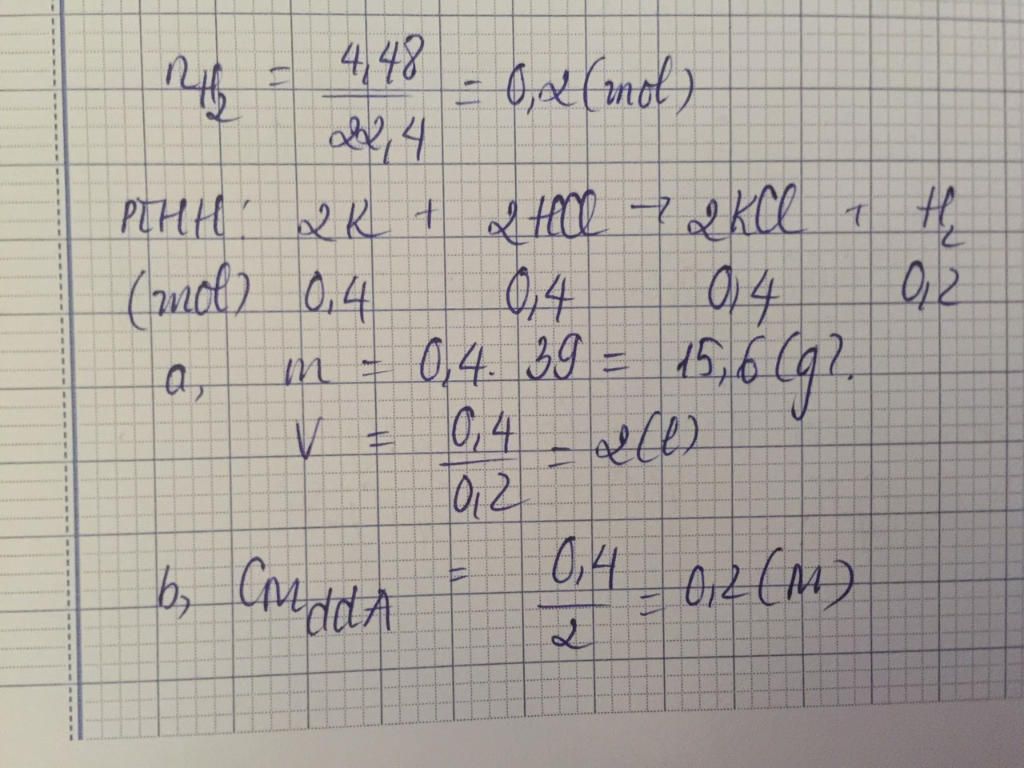 nH₂ = 4,48/22,4 = 0,2 (mol)
PTHH: 2K + 2HCl → 2KCl + H₂
(mol) 0,4 0,4 0,4 0,2
a, m = 0,4. 39 = 15,6 (g).
V = 0,4/0,2 = 2 (l)
b, CM ddA = 0,4/2 = 0,2 (M)